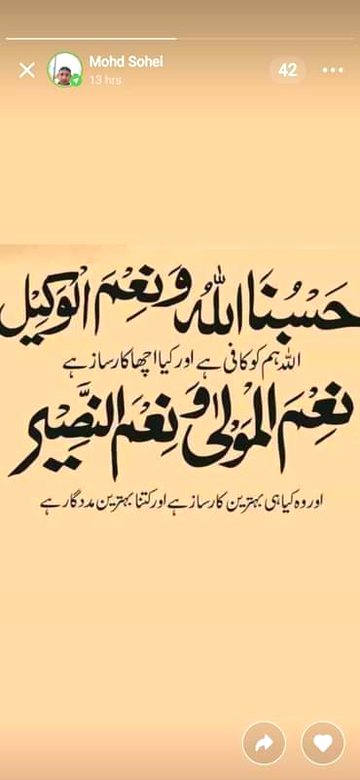 Mohd Sohel
13 hrs
42
حَسْبُنَا اللّٰهُ وَنِعْمَ الْوَكِيْل
اللہ ہم کو کافی ہے اور کیا اچھا کارساز ہے
نِعْمَ الْمَوْلٰی وَنِعْمَ النَّصِيْر
اور وہ کیا ہی بہترین کارساز ہے اور کتنا بہترین مددگار ہے